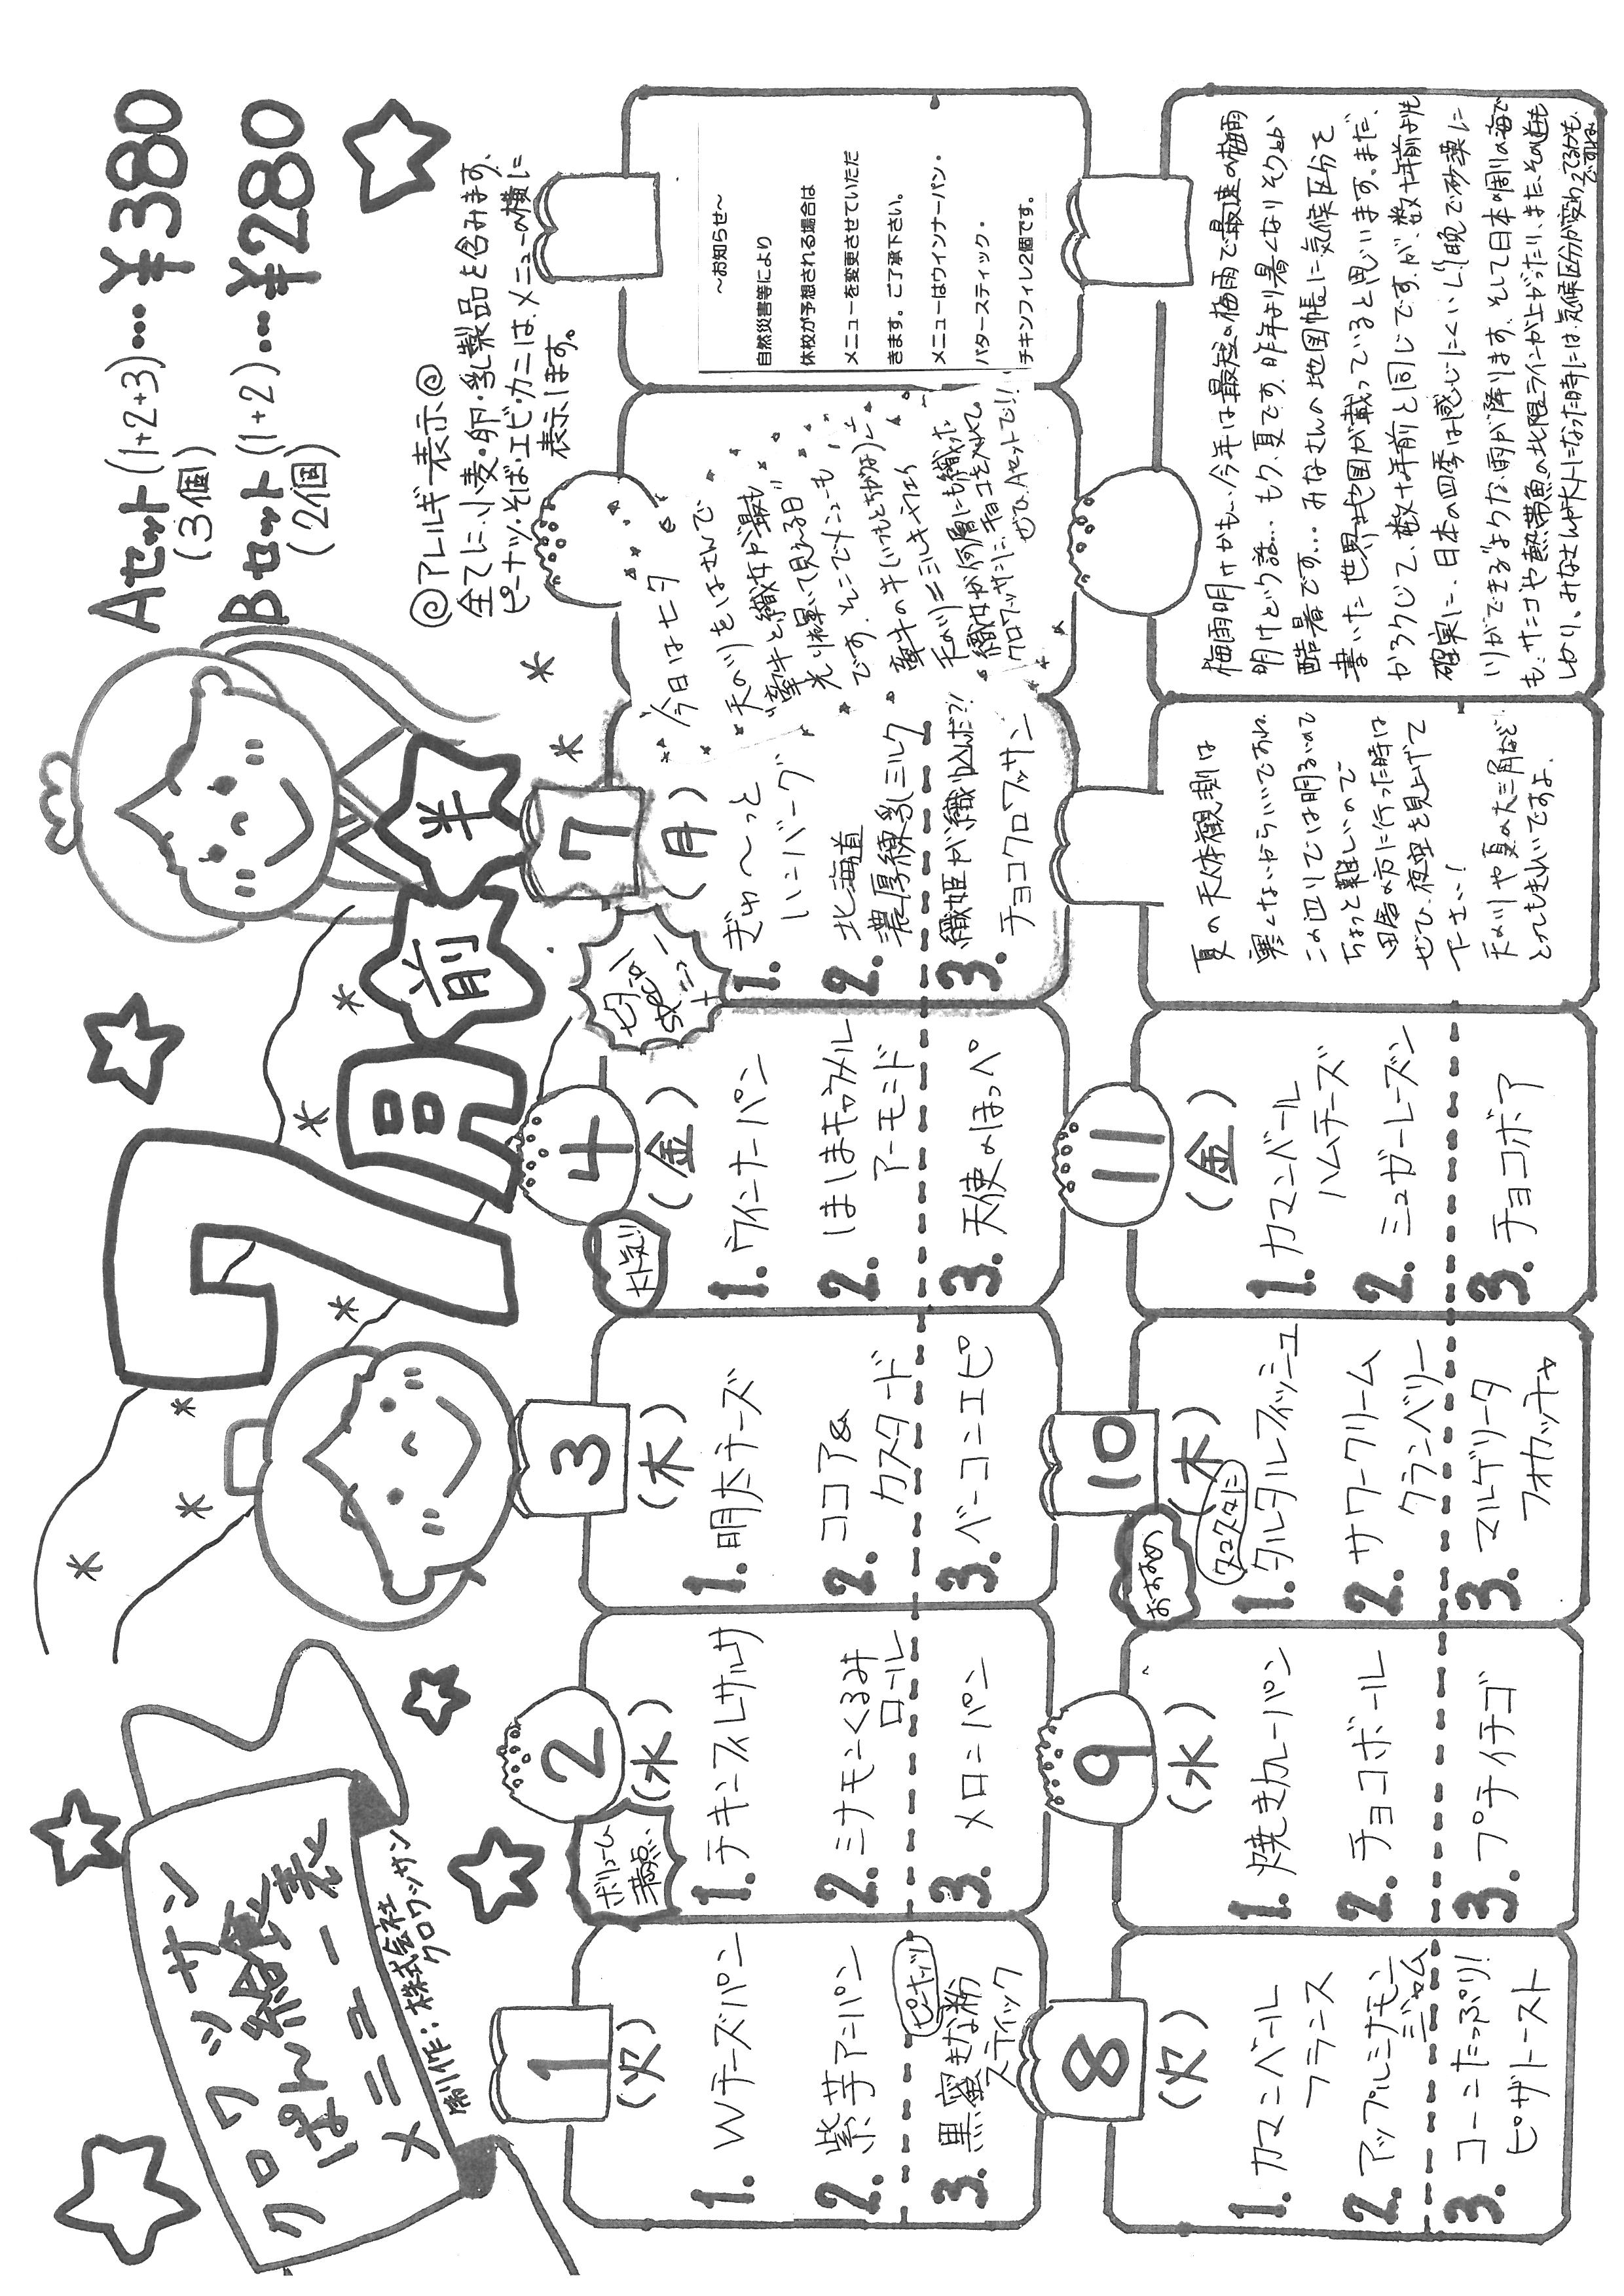 クロワッサン
ぱん給食
メニュー表
制作：株式会社
クロワッサン
7月前半
Aセット(1+2+3)…¥380
(3個)
Bセット(1+2)…¥280
(2個)
@アレルギー表示@
全てに、小麦・卵・乳製品を含みます。
ピーナッツ・そば・エビ・カニは、メニューの横に
表示します。
1
(火)
1. Wチーズパン
2. 紫芋アンパン
ピーナッツ
3. 黒蜜きな粉
スティック
2
(水)
ボリューム
満点
1. チキンフィレサルサ
2. シナモンくるみ
ロール
3. メロンパン
3
(木)
1. 明太チーズ
2. ココア&
カスタード
3. ベーコンエピ
4
(金)
人気!!
1. ウインナーパン
2. はしまキャラメル
アーモンド
3. 天使のほっぺ
7
(月)
七夕
1. ぎゅ〜っと
ハンバーグ
2. 北海道
濃厚練乳ミルク
3. 織姫が、織り込んだ?!
チョコクロワッサン
今日は七夕
天の川をはさんで
"牽牛と織女が最も
光り輝いて見える日
です。そこでメニューも
牽牛の牛(いつもとちがう)と
天の川=ミルキーウェイ
織女が何層にも織った
クロワッサンに、チョコを入れて
ぜひ、Aセットで!!
〜お知らせ〜
自然災害等により
休校が予想される場合は
メニューを変更させていただ
きます。ご了承下さい。
メニューはウィンナーパン・
バタースティック・
チキンフィレ2個です。
8
(火)
1. カマンベール
フランス
2. アップルシナモン
ジャム
3. コーンたっぷり!
ピザトースト
9
(水)
1. 焼きカレーパン
2. チョコボール
3. プティチゴ
10
(木)
おすすめ
1. タルタルフィッシュ
2. サワークリーム
クランベリー
3. マルゲリータ
フォカッチャ
11
(金)
1. カマンベール
ハムチーズ
2. シュガーレーズン
3. チョコボア
夏の天体観測は
寒くないからいいですよね。
この辺りでは明るいので
ちょっと難しいので
田舎の方に行った時は
ぜひ、夜空を見上げて
下さい!
天の川や夏の大三角など
とってもきれいですよ。
梅雨明けかも…今年は最短の梅雨で最速の梅雨
明けという話… もう、夏です。昨年より暑くなりそうとか
酷暑です… みなさんの地図帳に気候区分を
書いた世界地図が載っていると思います。まだ、
かろうじて、数十年前と同じですが、数十年前よりも
確実に、日本の四季は感じにくいし、1晩で砂漠に
川ができるような、雨が降ります。そして日本の周りの海で
も、サンゴや熱帯魚の北限ラインが上がったり、また、その逆も
しかり、みなさんが大人になった時には、気候区分が変わってるかも、
ですね。